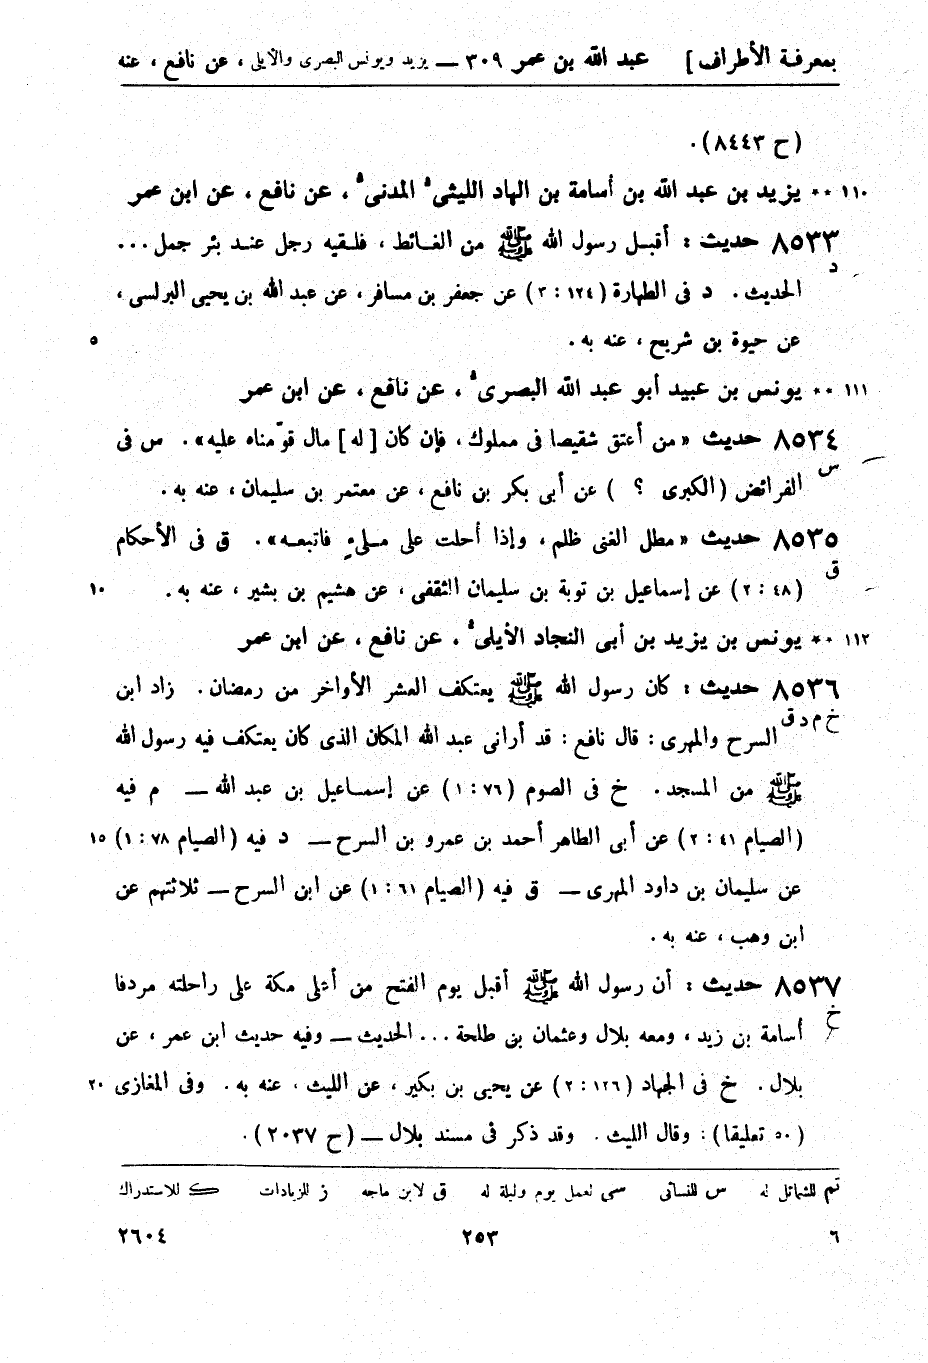 بمعرفة الأطراف ] عبد الله بن عمر ٣٠٩ — يزيد ويونس البصرى والأيلى ، عن نافع ، عنه
(ح ٨٤٤٣).
١١٠ ** يزيد بن عبد الله بن أسامة بن الهاد الليثى ْ المدنى ْ ، عن نافع ، عن ابن عمر
٨٥٣٣ حديث : أقبل رسول الله ﷺ من الغائط ، فلقيه رجل عند بئر جمل ...
د
الحديث . د فى الطهارة (١٢٤ : ٣) عن جعفر بن مسافر ، عن عبد الله بن يحيى البرلسى ،
عن حيوة بن شريح ، عنه به . ٥
١١١ ** يونس بن عبيد أبو عبد الله البصرى ْ ، عن نافع ، عن ابن عمر
٨٥٣٤ حديث «من أعتق شقيصا فى مملوك ، فإن كان [له] مال قوّمناه عليه» . س فى
س
الفرائض (الكبرى ؟ ) عن أبى بكر بن نافع ، عن معتمر بن سليمان ، عنه به .
٨٥٣٥ حديث «مطل الغنى ظلم ، وإذا أحلت على مـلىءٍ فاتبعـه» . ق فى الأحكام
ق
(٤٨ : ٢) عن إسماعيل بن توبة بن سليمان الثقفى ، عن هشيم بن بشير ، عنه به . ١٠
١١٢ ** يونس بن يزيد بن أبى النجاد الأيلى ْ ، عن نافع ، عن ابن عمر
٨٥٣٦ حديث : كان رسول الله ﷺ يعتكف العشر الأواخر من رمضان . زاد ابن
خ م د ق
السرح والمهرى : قال نافع : قد أرانى عبد الله المكان الذى كان يعتكف فيه رسول الله
ﷺ من المسجد . خ فى الصوم (٧٦ : ١) عن إسمـاعيل بن عبد الله — م فيه
(الصيام ٤١ : ٢) عن أبى الطاهر أحمد بن عمرو بن السرح — د فيه (الصيام ٧٨ : ١) ١٥
عن سليمان بن داود المهرى — ق فيه (الصيام ٦١ : ١) عن ابن السرح — ثلاثتهم عن
ابن وهب ، عنه به .
٨٥٣٧ حديث : أن رسول الله ﷺ أقبل يوم الفتح من أعلى مكة على راحلته مردفا
خ
أسامة بن زيد ، ومعه بلال وعثمان بن طلحة ... الحديث — وفيه حديث ابن عمر ، عن
بلال . خ فى الجهاد (١٢٦ : ٢) عن يحيى بن بكير ، عن الليث ، عنه به . وفى المغازى ٢٠
(٥٠ تعليقا) : وقال الليث . وقد ذكر فى مسند بلال — (ح ٢٠٣٧) .
تم للشمائل له س للنسائى سى لعمل يوم وليلة له ق لابن ماجه ز للزيادات ك للاستدراك
٦ ٢٥٣ ٢٦٠٤